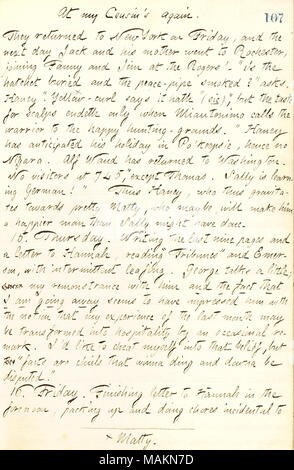 At my Cousin's again.
107
They returned to New York on Friday, and the
next day Jack and his mother went to Rochester,
joining Fanny and Jim at the Rogers'. "Is the
hatchet buried and the peace-pipe smoked?" asks
Haney. "Yellow-curl says it hath (sic), but the taste
for scalps endeth only when Miantonimo calls the
warrior to the happy hunting-grounds." Haney
has anticipated his holiday in Po'keepsie, hence no
Niagara. Alf Waud has returned to Washington.
No visitors at 745, except Thomas. Sally is learn-
ing German!" Thus Haney, who thus gravita-
tes towards pretty Matty, who maybe will make him
a happier man than Sally might have done.
15. Thursday. Writing the last nine pages and
a letter to Hannah, reading "Tribunes" and Emer-
son, with intermittent loafing. George talks a little,
my remonstrance with him and the fact that
I am going away seems to have impressed him with
the notion that my experience of the last month may
be transformed into hospitality by an occasional re-
mark. I'd like to cheat myself into that belief, but
"facts are chiels that winna ding and downa be
disputed."
16. Friday. Finishing letter to Hannah in the
forenoon, packing up and doing chores incidental to
x Matty.
alamy
Image ID: MAKN7D
www.alamy.com